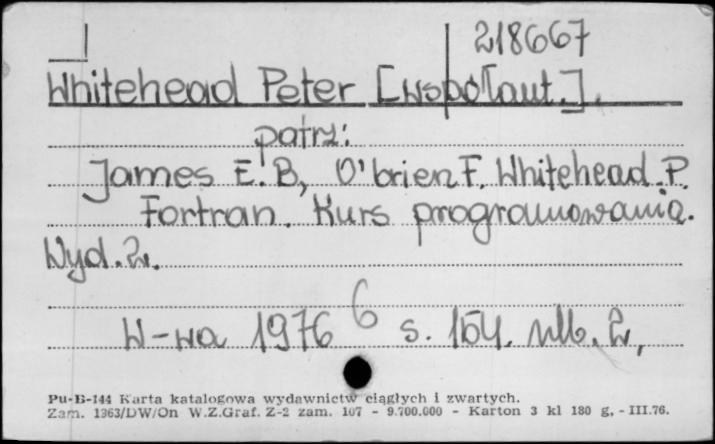 218667
Whitehead Peter [współaut.].
patrz:
James E.B, O'brien F. Whitehead. P.
Fortran. Kurs programowania.
Wyd. 2.
W-wa 1976 6 s. 154. nlb. 2,
Pu-B-144 Karta katalogowa wydawnictw ciągłych i zwartych.
Zam. 1363/DW/On W.Z.Graf. Z-2 zam. 107 - 9.700.000 - Karton 3 kl 180 g. - III.76.